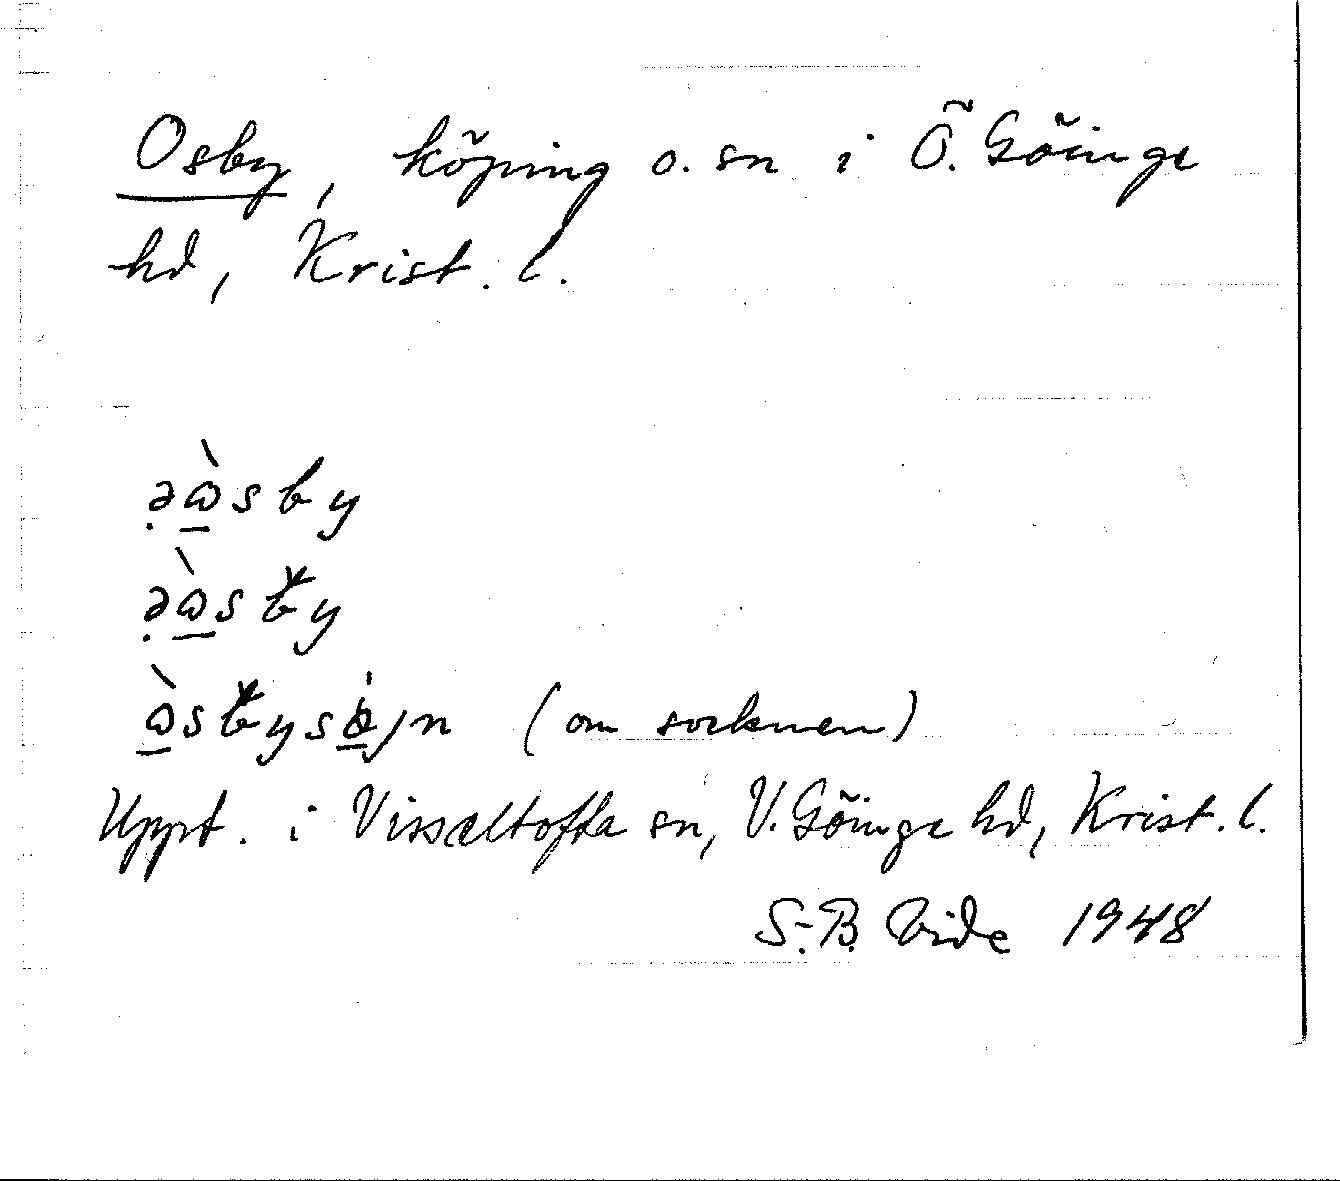 Osby, köping o. sn i Ö. Göinge
hd, Krist. l.
(om socknen)
Uppt. i Visseltofta sn, V. Göinge hd, Krist. l.
S.-B. Vide 1948